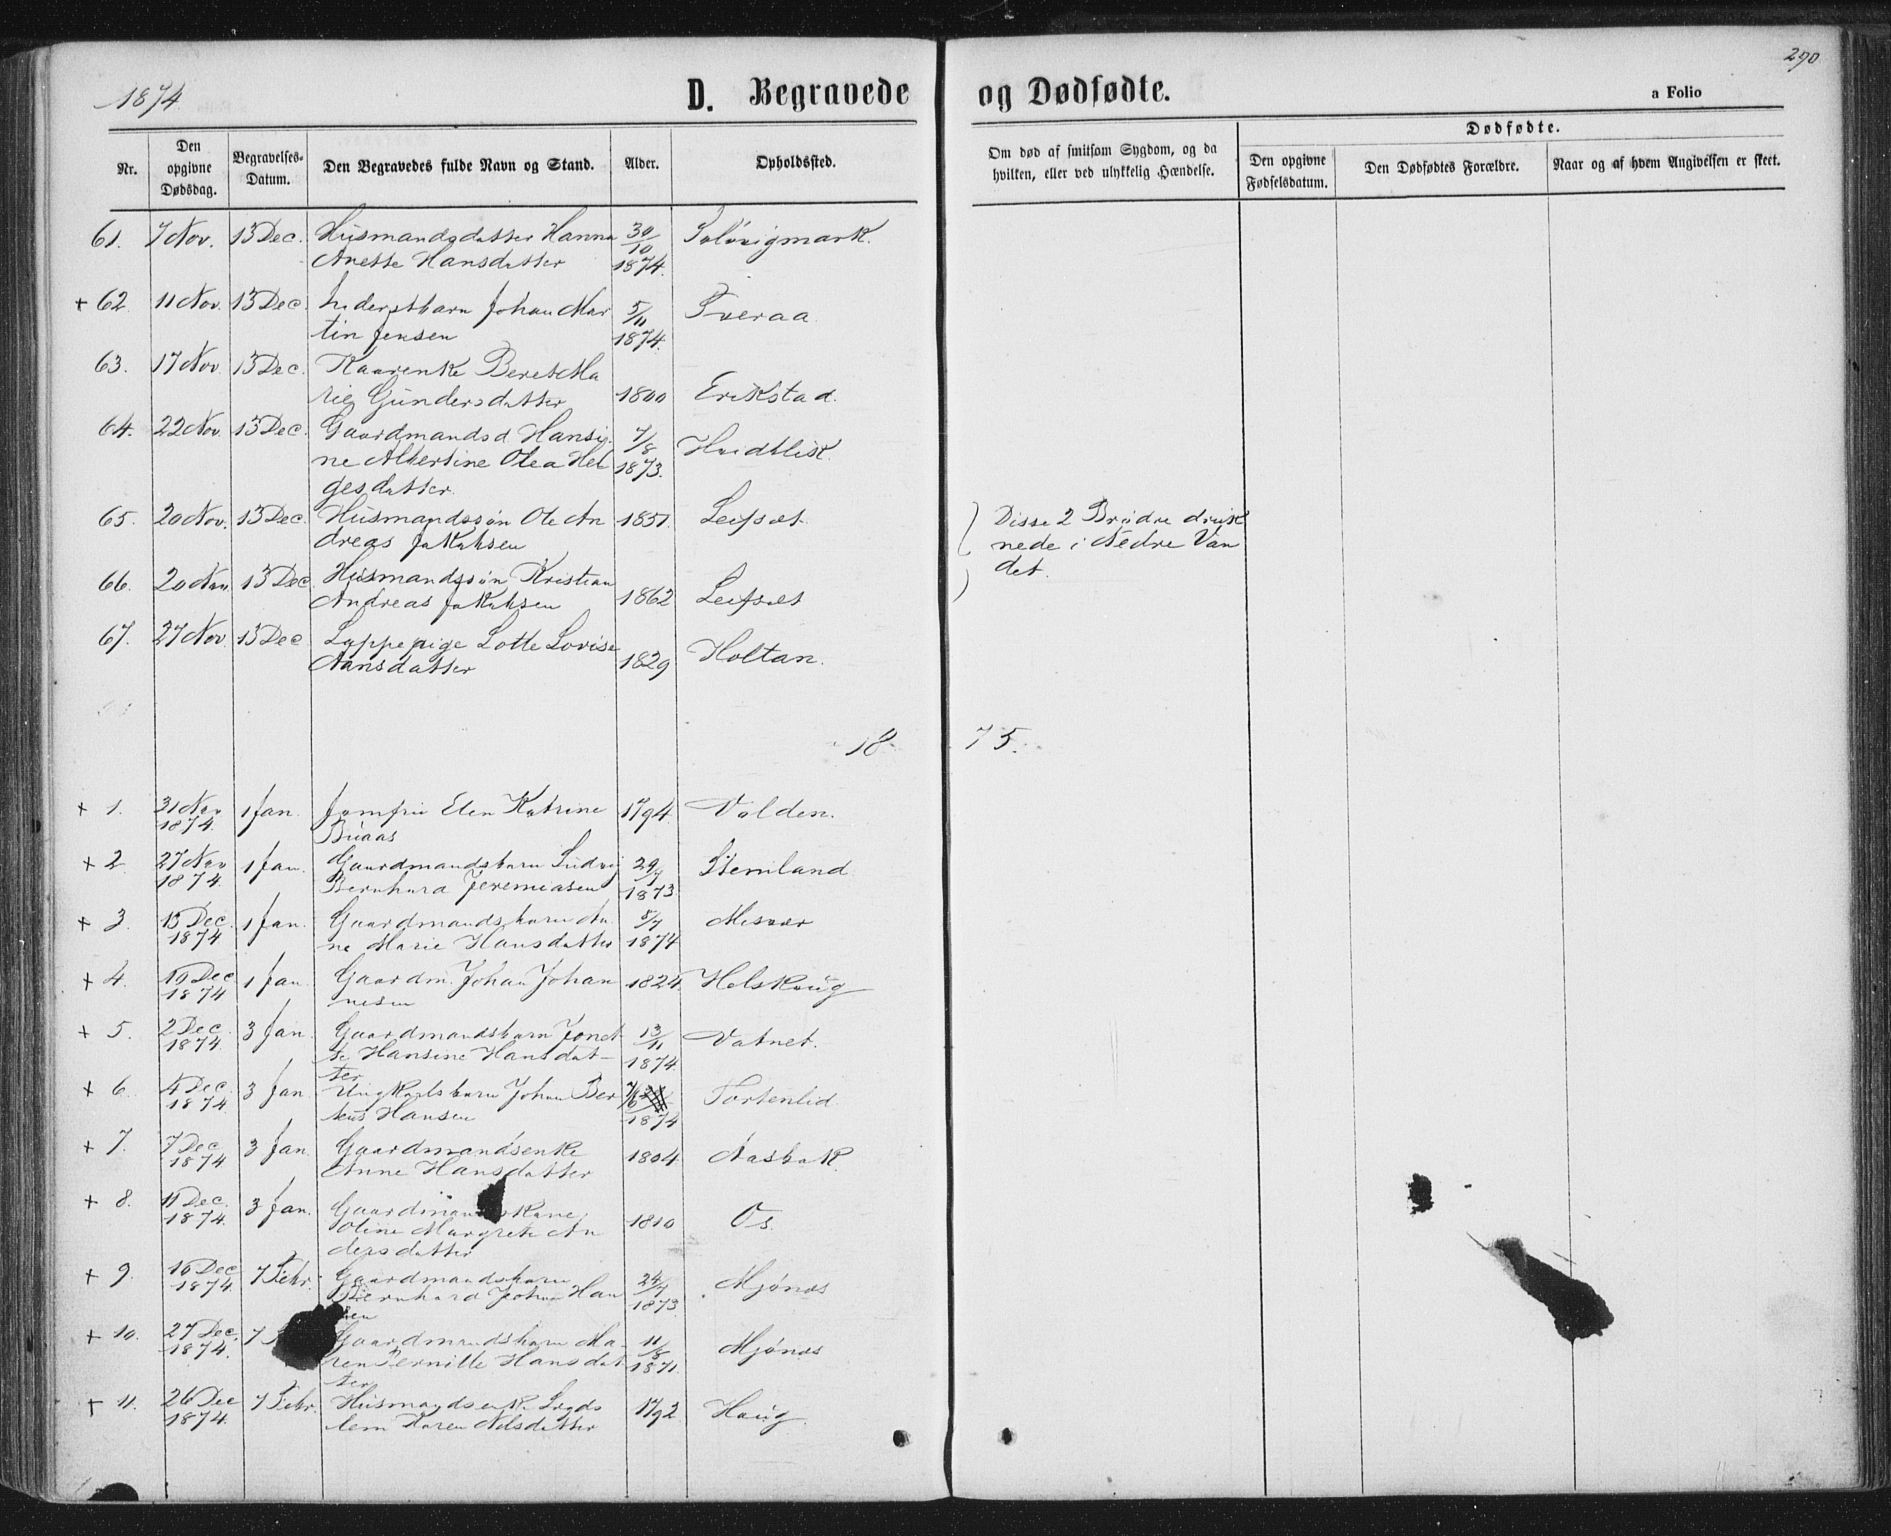 1874.
D. Begravede og Dødfødte.
290
a Folio
Nr.
Den opgivne Dødsdag.
Begravelses-Datum.
Den Begravedes fulde Navn og Stand.
Alder.
Opholdssted.
Om død af smitsom Sygdom, og da hvilken, eller ved ulykkelig Hændelse.
Dødfødte.
Den opgivne Fødselsdatum.
Den Dødfødtes Forældre.
Naar og af hvem Angivelsen er skeet.
61. 7 Nov. 13 Dec. Husmandsdatter Hanna 30/10
Anette Hansdatter 1874. Soløvigmark.
+ 62 11 Nov. 13 Dec. Johan Mar 5/11 Tveraa
tin Jensen 1874.
63. 17 Nov 13 Dec. Kaarenke Beret Ma
rie Gundersdatter 1800 Erikstad.
64. 22 Nov. 13 Dec. Gaardmandsd Hansi 7/8
ne Albertine Olea Hel 1873. Hvidtlisk.
gesdatter.
65. 20 Nov. 13 Dec. Husmandssøn Ole An 1857. Leifset.
dreas Jakobsen
Disse 2 Brødre druk
nede i Nedre Van
det.
66. 20 Nov. 13 Dec Husmandssøn Kristian
Andreas Jakobsen 1862 Leifset
67. 27 Nov. 13 Dec Lappepige Lotte Lovise
Aansdatter 1829 Holtan.
18 75.
+ 1. 31 Nov 1 Jan. Jomfru Elen Katrine 1794. Valden.
1874. Buaas
+ 2 27 Nov 1 Jan. Gaardmandsbarn Ludvig 29/7 Stemland
1874. Bernhard Jeremiasen 1873
+ 3. 13 Dec. 1 Jan. Gaardmandsbarn An 8/7 Misvær
1874 ne Marie Hansdatter 1874
+ 4. 19 Dec 1 Jan. Gaardm. Johan Johan 1824. Helskoug
1874 nesen
+ 5. 2 Dec. 3 Jan. Gaardmandsbarn Jonet 13/11 Vatnet.
1874. te Hansine Hansdat- 1874.
ter
+ 6. 4 Dec. 3 Jan. Ungkarlsbarn Johan Ber 7/6 Tortenlid
1874 teus Hansen 1874
+ 7. 7 Dec. 3 Jan. Gaardmandsenke 1804. Aasbak.
1874 Anne Hansdatter
+ 8. 11 Dec. 3 Jan. Gaardmandskone 1810 Os.
1874. Oline Margrete An
dersdatter
+ 9. 16 Dec 7 Febr. Gaardmandsbarn 24/7 Mjønes
1874. Bernhard Johan Han 1873
sen
+ 10. 27 Dec. 7 Gaardmandsbarn Ma- 11/8 Mjønes
1874. ren Pernille Hansdat 1871.
ter
+ 11. 26 Dec 7 Febr. Husmandsenke Lægds 1792 Haug.
1874. lem Karen Nilsdatter